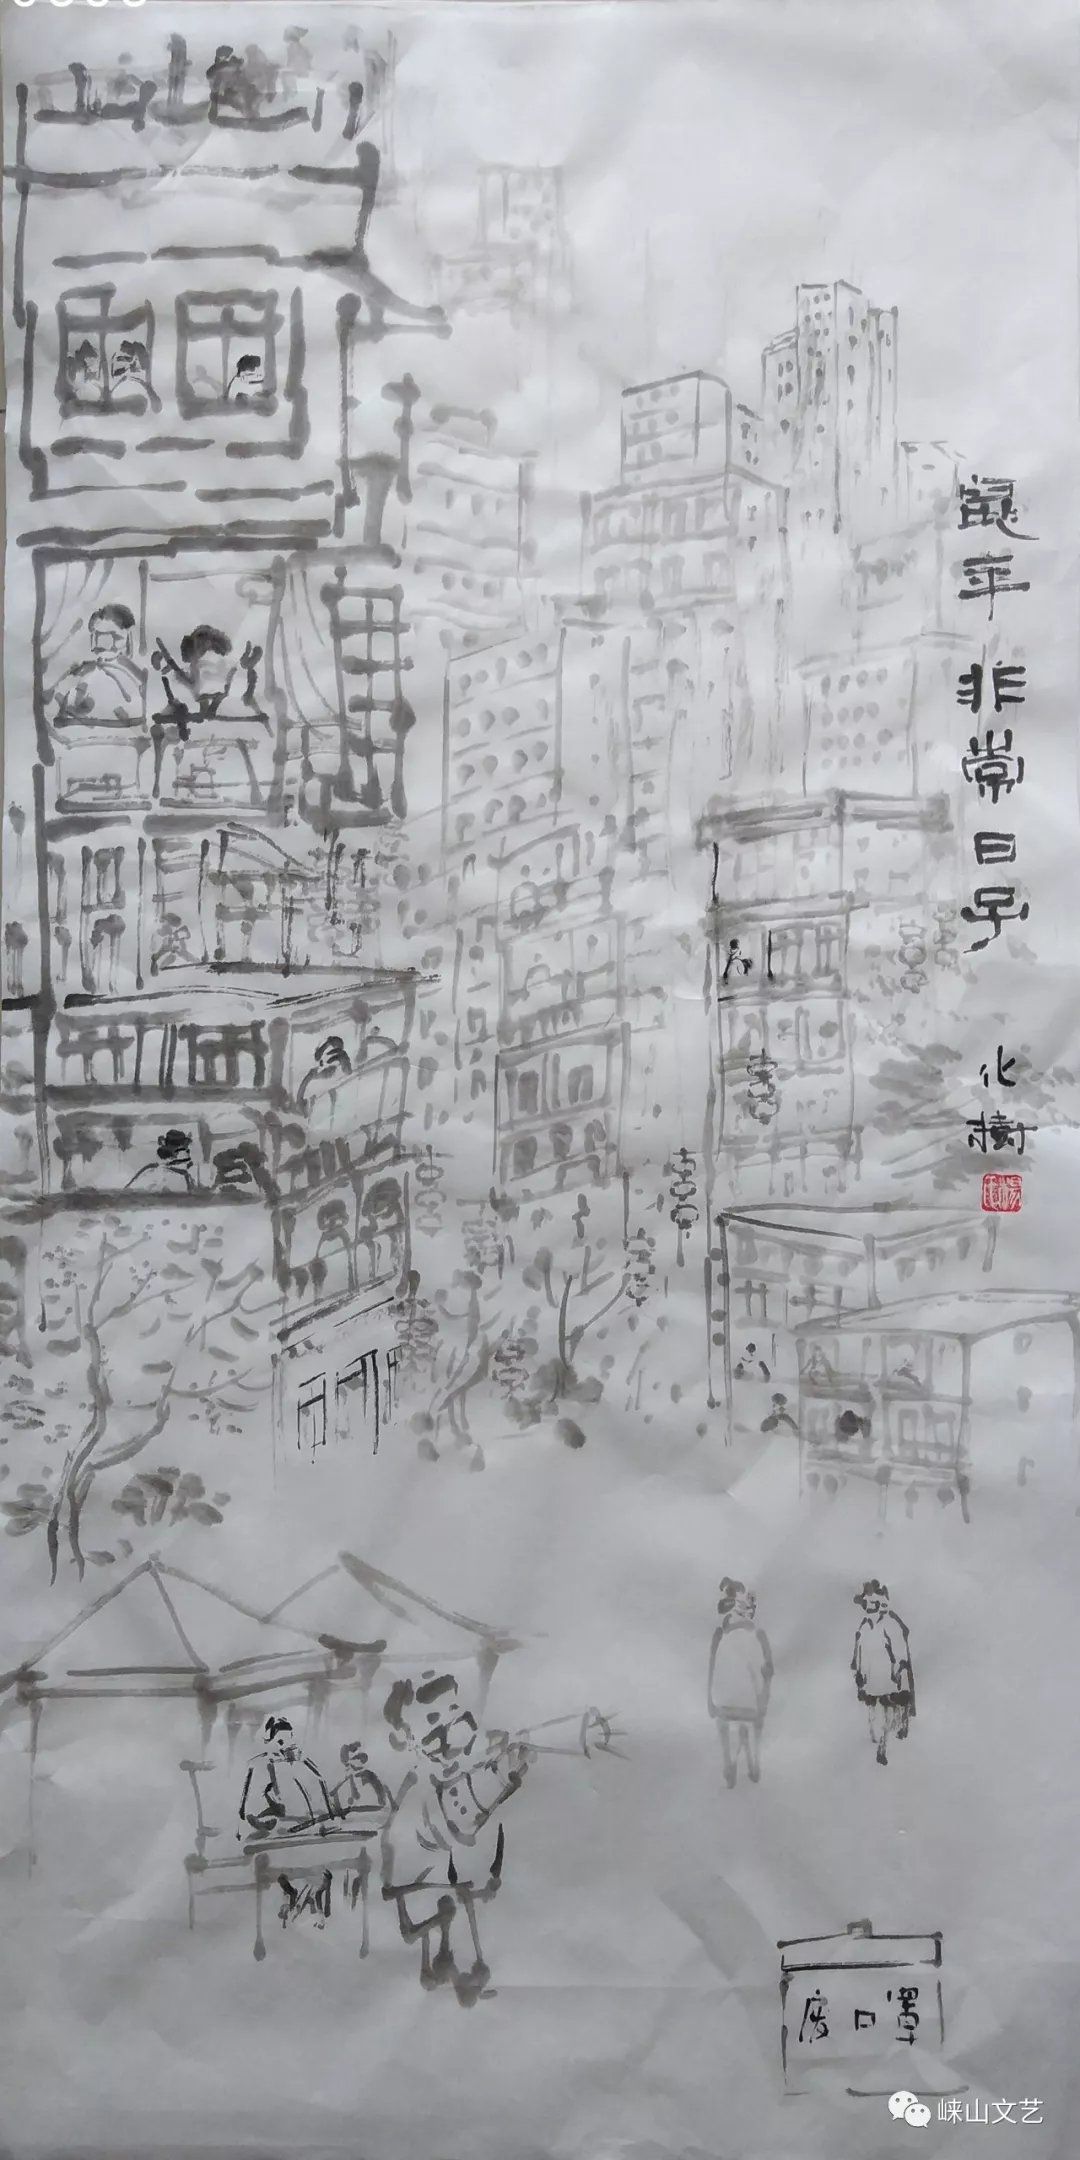 鼠年非常日子
化樹
废口罩
崃山文艺